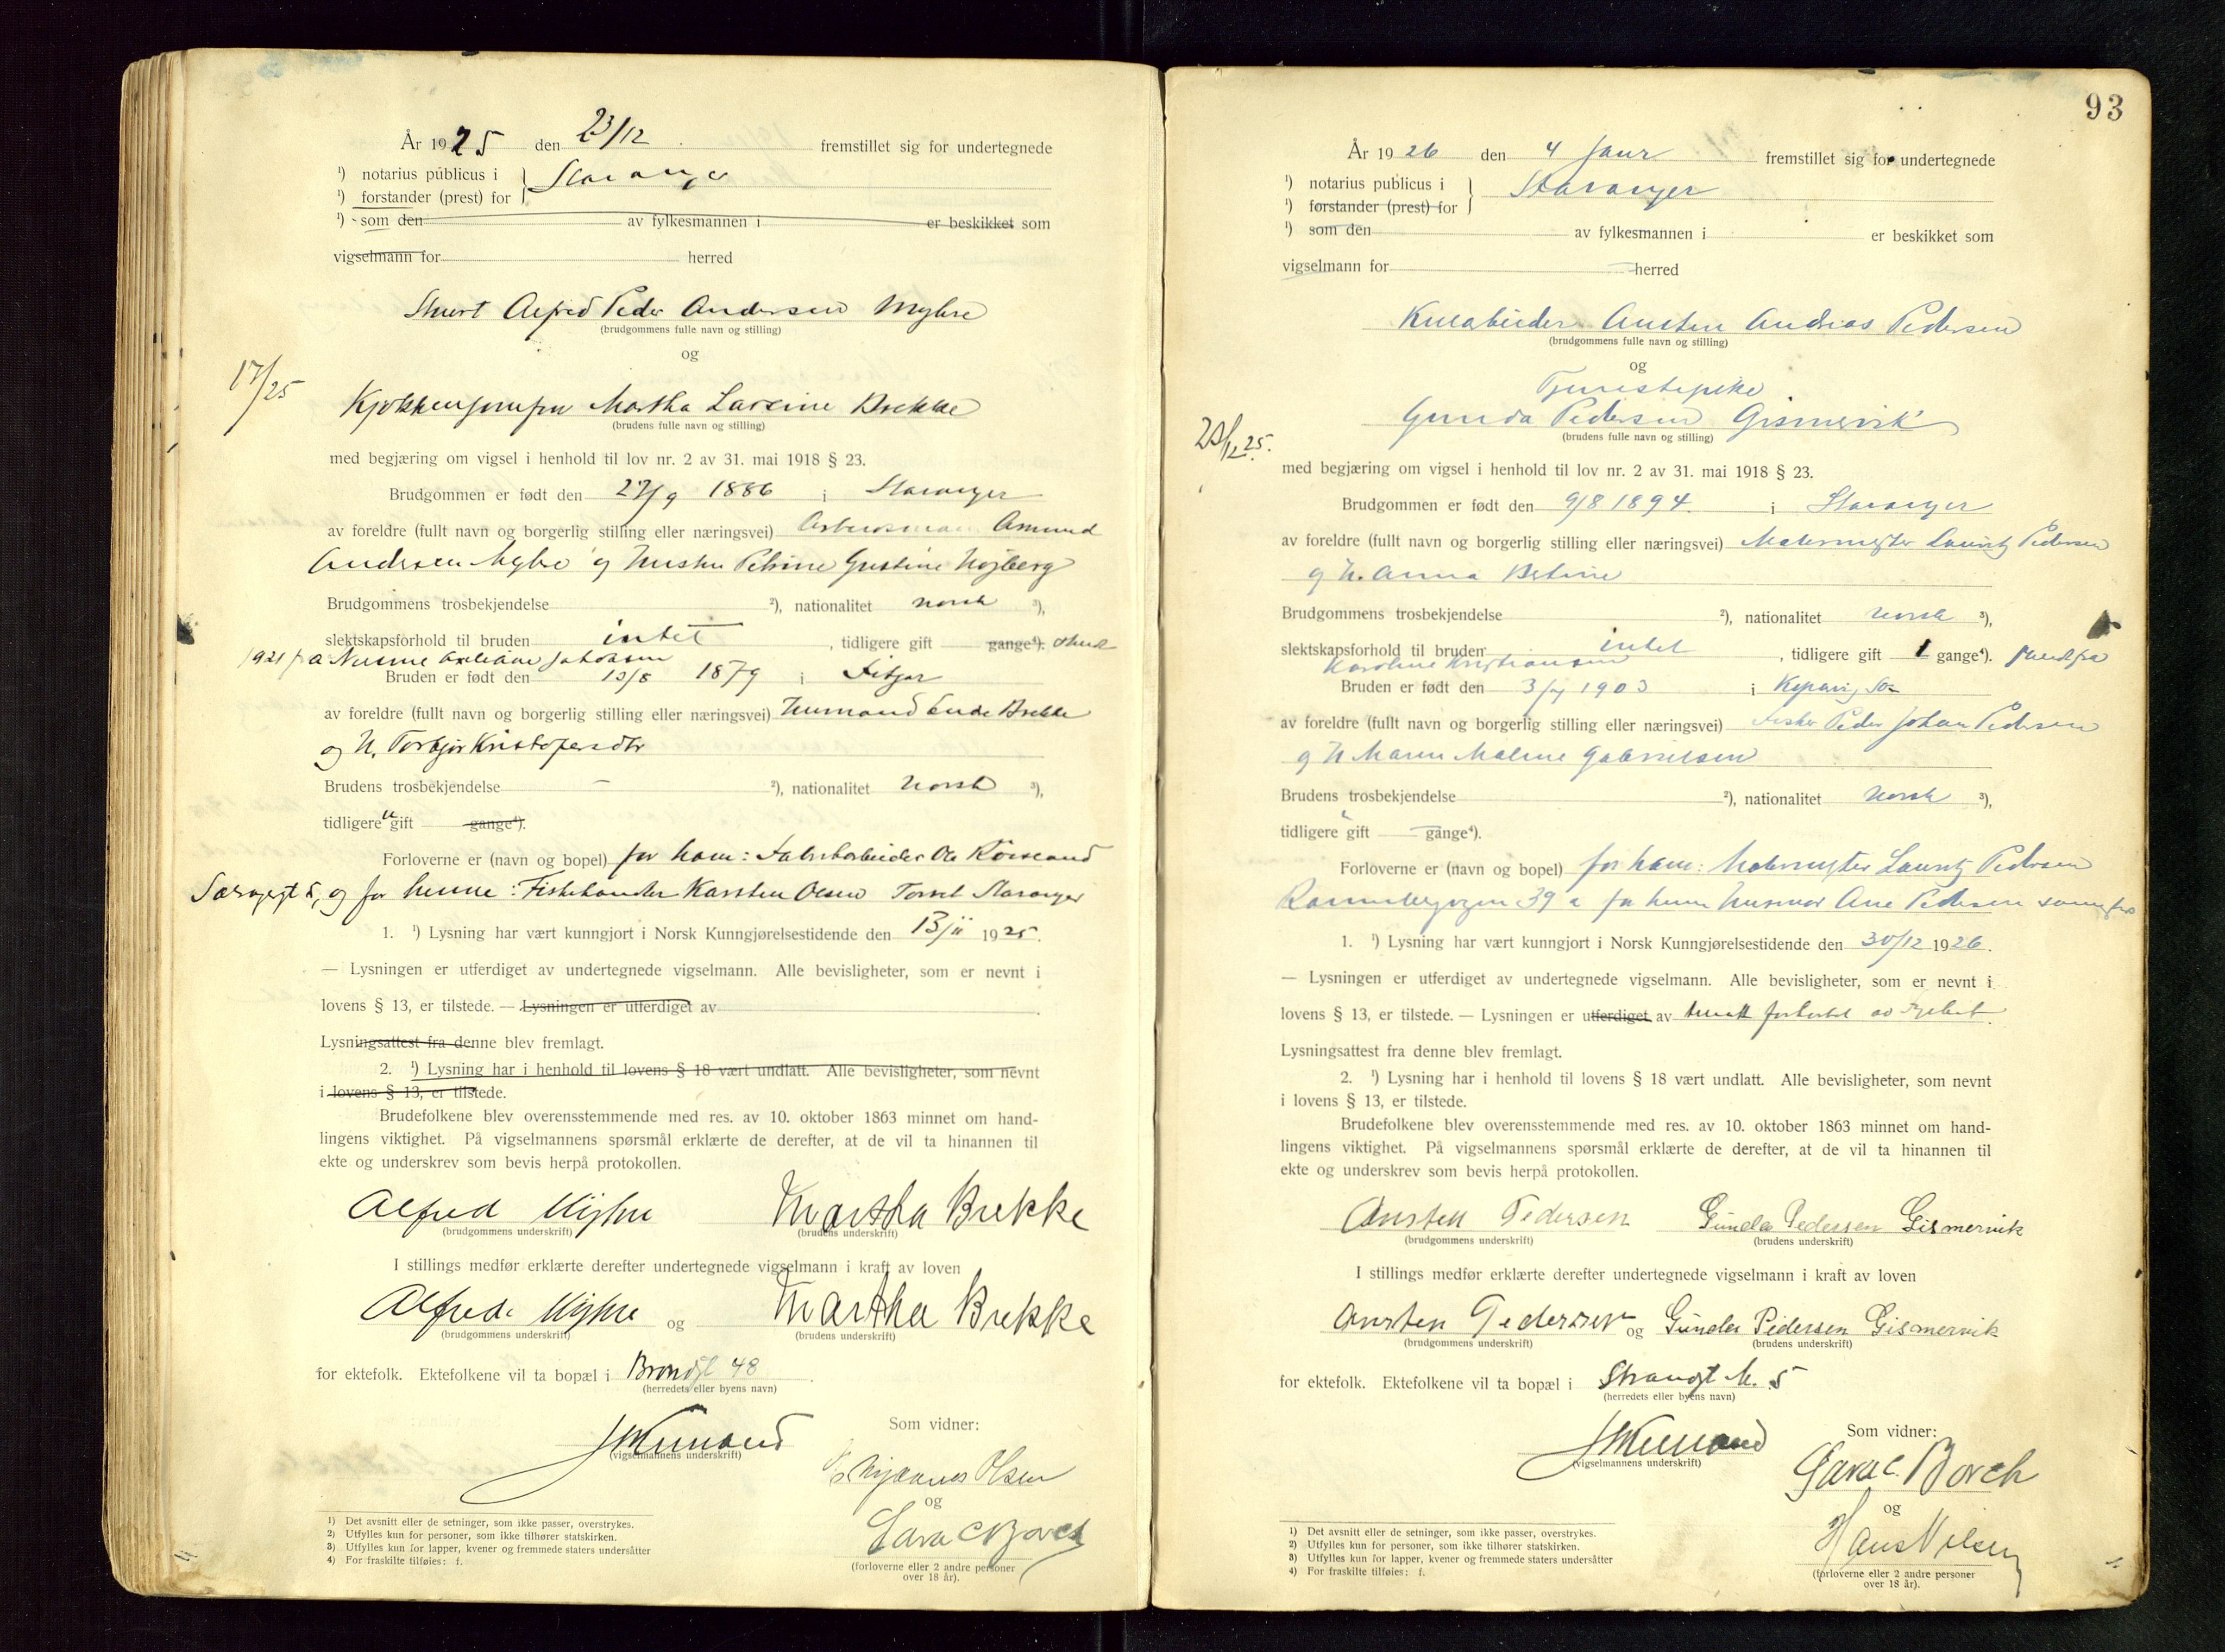 År 1925 den 23/12 fremstillet sig for undertegnede
¹) notarius publicus i
¹) forstander (prest) for } Stavanger
¹) som den av fylkesmannen i er beskikket som
vigselmann for herred
Alfred Peder Andersen Myhre
(brudgommens fulle navn og stilling)
og
17/25
Kjøkkenjomfru Martha Larsine Brekke
(brudens fulle navn og stilling)
med begjæring om vigsel i henhold til lov nr. 2 av 31. mai 1918 § 23.
Brudgommen er født den 27/9 1886 i Stavanger
av foreldre (fullt navn og borgerlig stilling eller næringsvei) Arbeidsmann Amund
Andersen Myhre og hustru Petrine Gustine Højberg
Brudgommens trosbekjendelse ²), nationalitet norsk ³),
slektskapsforhold til bruden intet , tidligere gift gange⁴). skilt
1921 fra Jakobsen
Bruden er født den 13/8 1879 i Fitjar
av foreldre (fullt navn og borgerlig stilling eller næringsvei) Husmand Brekke
og H. Torbjør Kristofersdtr
Brudens trosbekjendelse – ²), nationalitet Norsk ³),
tidligere u gift gange⁴).
Forloverne er (navn og bopel) for ham: Fabrikarbeider Ole
og for henne: Fiskehandler Karsten Olsen Torvet Stavanger
1. ¹) Lysning har vært kunngjort i Norsk Kunngjørelsestidende den 13/11 1925.
— Lysningen er utferdiget av undertegnede vigselmann. Alle bevisligheter, som er nevnt i
lovens § 13, er tilstede. — Lysningen er utferdiget av
Lysningsattest fra denne blev fremlagt.
2. ¹) Lysning har i henhold til lovens § 18 vært undlatt. Alle bevisligheter, som nevnt
i lovens § 13, er tilstede.
Brudefolkene blev overensstemmende med res. av 10. oktober 1863 minnet om hand-
lingens viktighet. På vigselmannens spørsmål erklærte de derefter, at de vil ta hinannen til
ekte og underskrev som bevis herpå protokollen.
Alfred Myhre Martha Brekke
(brudgommens underskrift) (brudens underskrift)
I stillings medfør erklærte derefter undertegnede vigselmann i kraft av loven
Alfred Myhre og Martha Brekke
(brudgommens underskrift) (brudens underskrift)
for ektefolk. Ektefolkene vil ta bopæl i 48
(herredets eller byens navn)
(vigselmannens underskrift)
Som vidner:
Olsen
og
Sara C Borch
(forloverne eller 2 andre personer
over 18 år).
1) Det avsnitt eller de setninger, som ikke passer, overstrykes.
2) Utfylles kun for personer, som ikke tilhører statskirken.
3) Utfylles kun for lapper, kvener og fremmede staters undersåtter
4) For fraskilte tilføies: f.
93
År 1926 den 4 Janr fremstillet sig for undertegnede
¹) notarius publicus i
¹) forstander (prest) for } Stavanger
¹) som den av fylkesmannen i er beskikket som
vigselmann for herred
Austen Andreas Pedersen
(brudgommens fulle navn og stilling)
og
Tjenestepike
Gunda Pedersen Gismervik
(brudens fulle navn og stilling)
med begjæring om vigsel i henhold til lov nr. 2 av 31. mai 1918 § 23.
Brudgommen er født den 9/8 1894. i Stavanger
av foreldre (fullt navn og borgerlig stilling eller næringsvei) Malermester Lauritz Pedersen
og H. Anna Bertine
Brudgommens trosbekjendelse ²), nationalitet Norsk ³),
slektskapsforhold til bruden intet , tidligere gift 1 gange⁴). skilt fra
Karoline Kristiansen
Bruden er født den 1903 i Kopervig
av foreldre (fullt navn og borgerlig stilling eller næringsvei) Fisker Peder Johan Pedersen
og H Maren Malene Gabrielsen
Brudens trosbekjendelse ²), nationalitet Norsk ³),
tidligere u gift gange⁴).
Forloverne er (navn og bopel) for ham: Malermester Lauritz Pedersen
39 a for henne Husmor Ane Pedersen
1. ¹) Lysning har vært kunngjort i Norsk Kunngjørelsestidende den 30/12 1926.
— Lysningen er utferdiget av undertegnede vigselmann. Alle bevisligheter, som er nevnt i
lovens § 13, er tilstede. — Lysningen er utferdiget av
Lysningsattest fra denne blev fremlagt.
2. ¹) Lysning har i henhold til lovens § 18 vært undlatt. Alle bevisligheter, som nevnt
i lovens § 13, er tilstede.
Brudefolkene blev overensstemmende med res. av 10. oktober 1863 minnet om hand-
lingens viktighet. På vigselmannens spørsmål erklærte de derefter, at de vil ta hinannen til
ekte og underskrev som bevis herpå protokollen.
Austen Pedersen Gunda Pedersen Gismervik
(brudgommens underskrift) (brudens underskrift)
I stillings medfør erklærte derefter undertegnede vigselmann i kraft av loven
Austen Pedersen og Gunda Pedersen Gismervik
(brudgommens underskrift) (brudens underskrift)
for ektefolk. Ektefolkene vil ta bopæl i Strandgt N. 5
(herredets eller byens navn)
(vigselmannens underskrift)
Som vidner:
Sara C. Borch
og
Hans Nilsen
(forloverne eller 2 andre personer
over 18 år).
1) Det avsnitt eller de setninger, som ikke passer, overstrykes.
2) Utfylles kun for personer, som ikke tilhører statskirken.
3) Utfylles kun for lapper, kvener og fremmede staters undersåtter
4) For fraskilte tilføies: f.